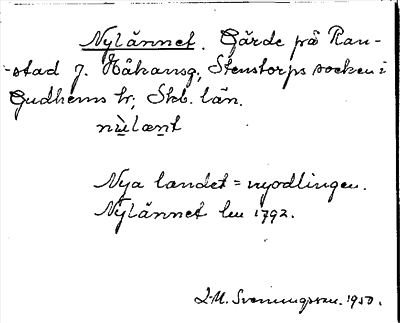 Nylännet. Gärde på Ran-
-stad J. Håkansg, Stenstorps socken i
Gudhems hr; Skb. län.
nùlænt
Nya landet = nyodlingen.
Nylännet lm 1792.
I.M. Svenungsson. 1950.